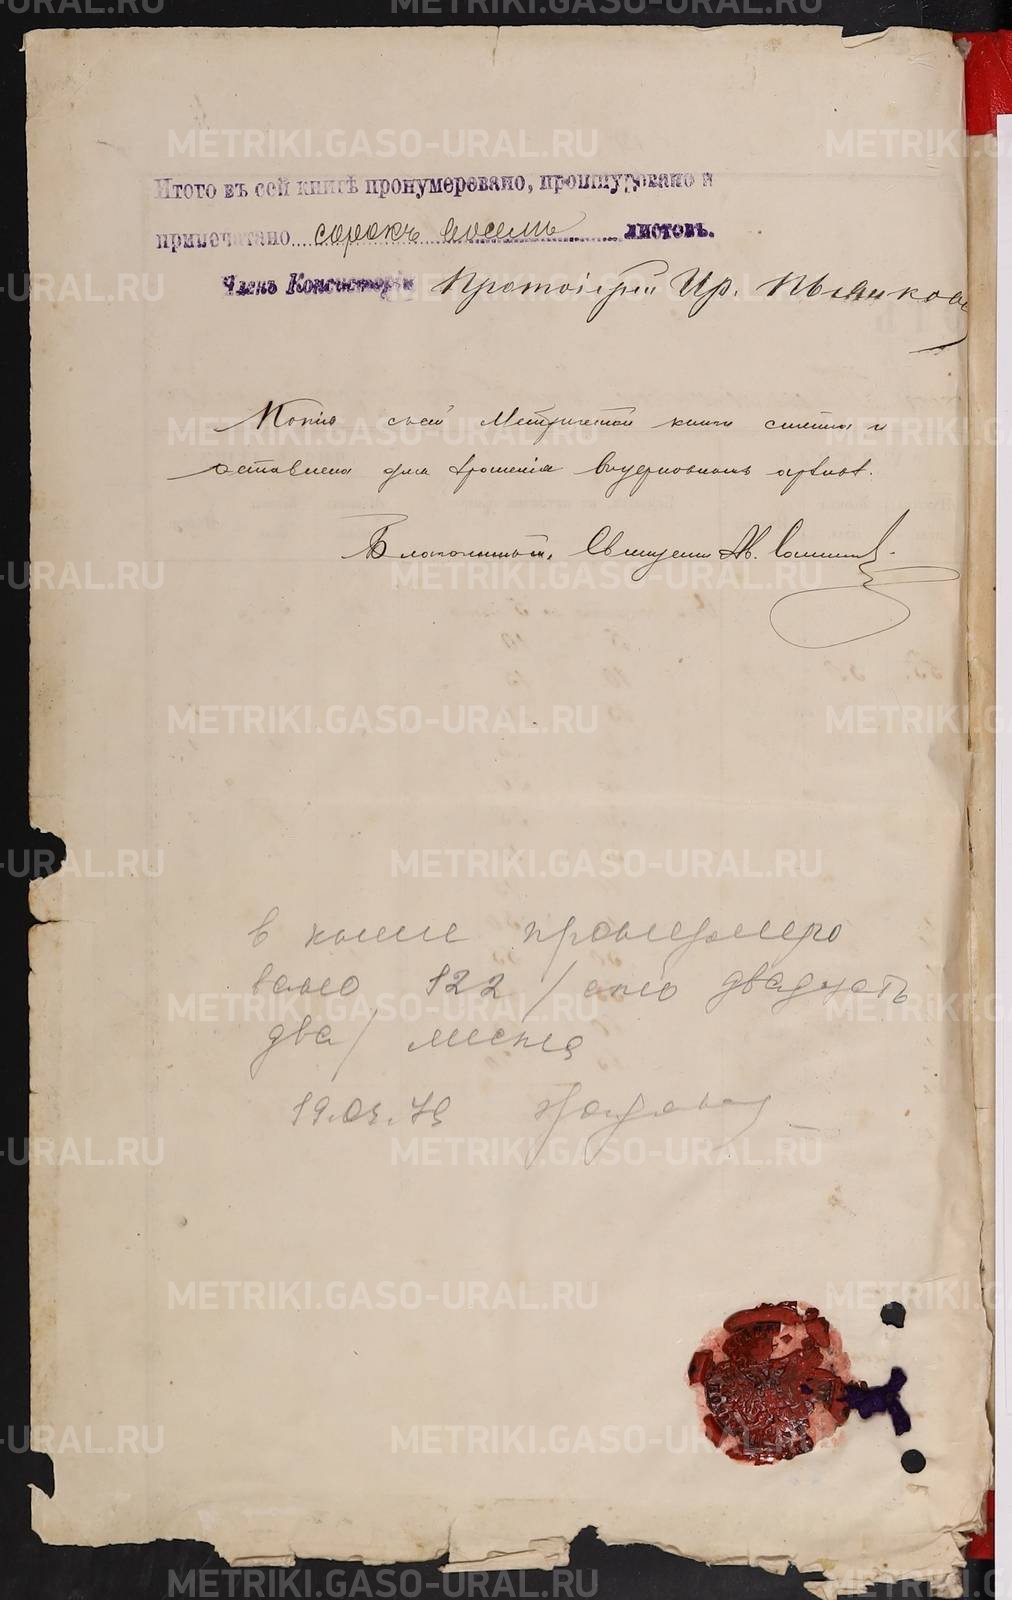 Итого въ сей книгѣ пронумеровано, прошнуровано и
припечатано сорокъ восемь листовъ.
Членъ Консисторіи Протоіерей Пьянков
Копія сей Метрической книги снята и
оставлена для храненія архивѣ.
Благочинный, Священ
в книге пронумеро
вано 122 /сто двадцать
два/ листа
METRIKI.GASO-URAL.RU